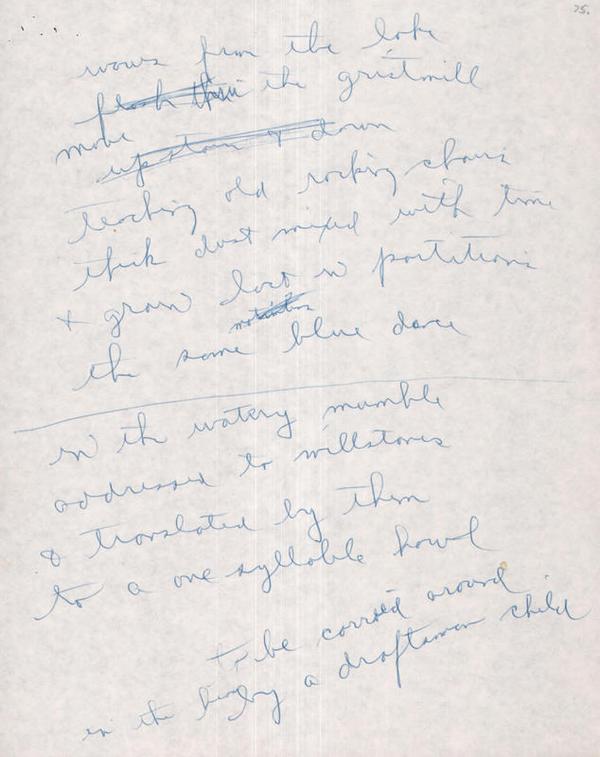 75.
waves from the lake
flash thru the gristmill
move
upstairs & down
teaching old rocking chairs
thick dust mixed with time
+ grain lost in partitions
the same blue dance
in the watery mumble
addressed to millstones
& translated by them
to a one syllable howl
to be carried around
in the by a draftsman child